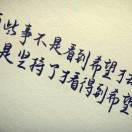 有些事不是看到希望才
是坚持了才看得到希望